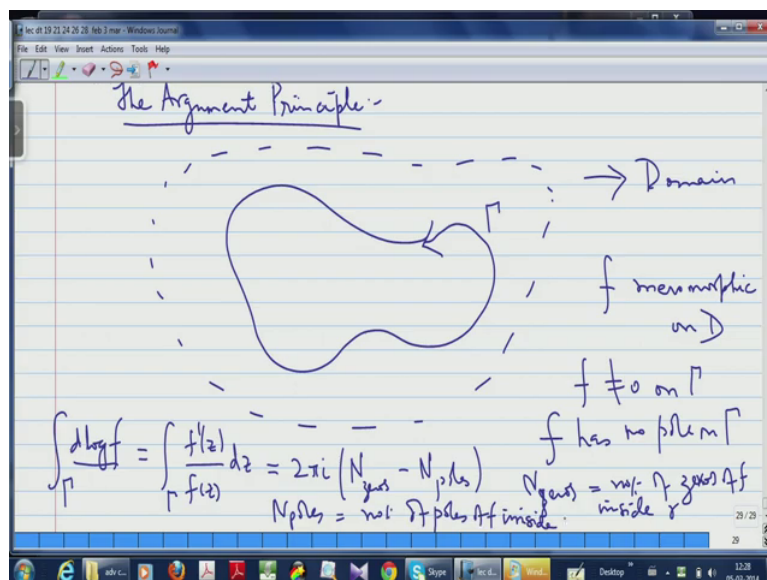 lec dt 19 21 24 26 28 feb 3 mar - Windows Journal
File Edit View Insert Actions Tools Help
The Argument Principle:-
→ Domain
Γ
f meromorphic
on D
f ≠ 0 on Γ
f has no pole on Γ
∫_Γ dlog f = ∫_Γ f'(z)/f(z) dz = 2πi (N_zeros - N_poles)
N_zeros = no: of zeros of f
inside γ
N_poles = no: of poles of f inside.
29 / 29
29
adv c...
Skype
lec d...
Wind...
Desktop
12:28